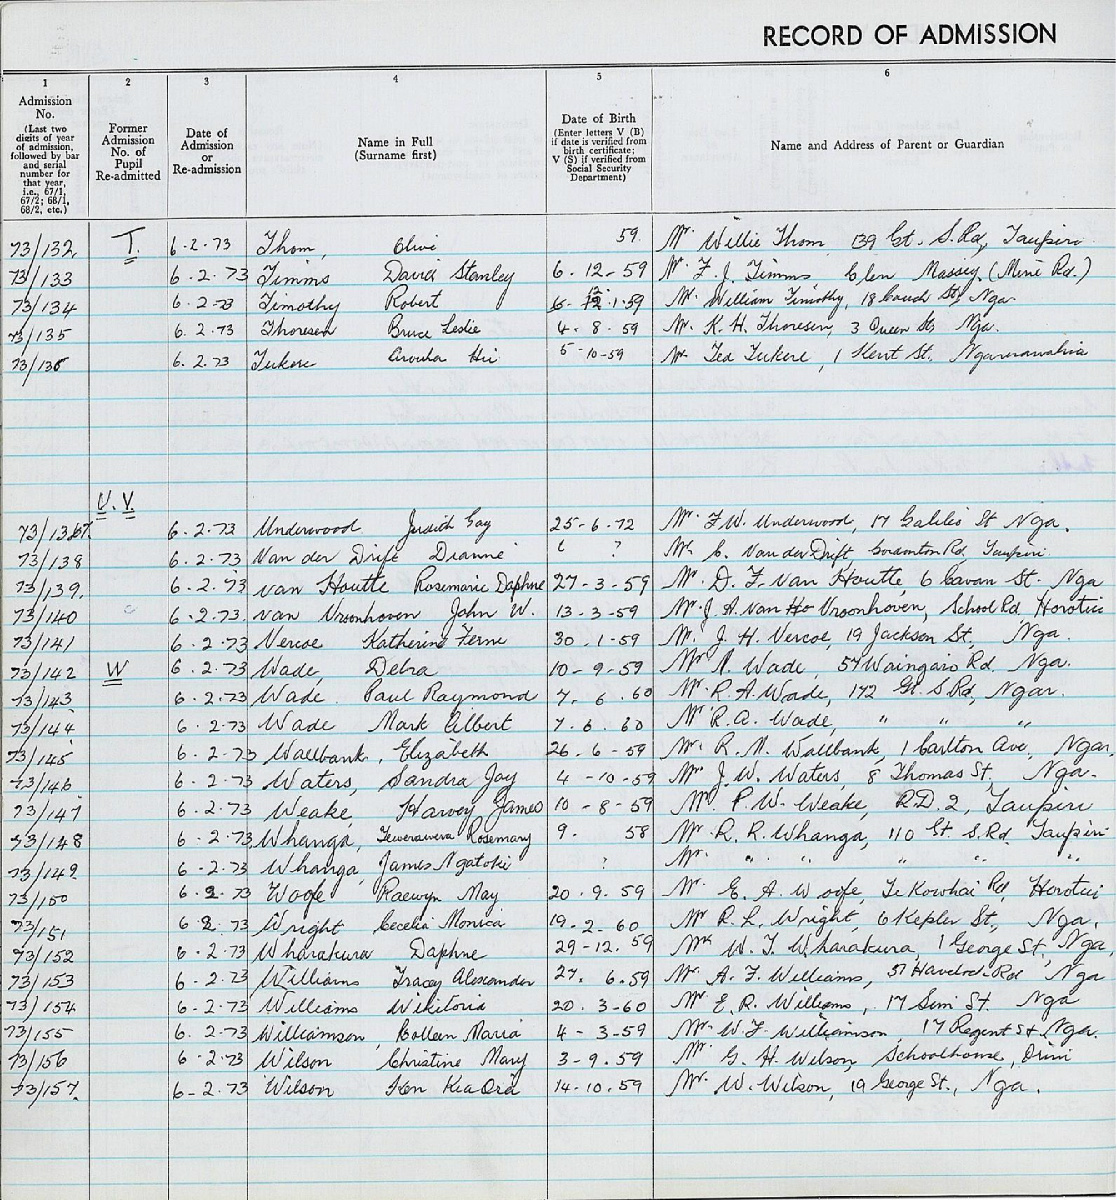 RECORD OF ADMISSION
1 2 3 4 5 6
Admission No. (Last two digits of year of admission, followed by bar and serial number for that year, i.e., 67/1, 67/2; 68/1, 68/2, etc.)
Former Admission No. of Pupil Re-admitted
Date of Admission or Re-admission
Name in Full (Surname first)
Date of Birth (Enter letters V (B) if date is verified from birth certificate; V (S) if verified from Social Security Department)
Name and Address of Parent or Guardian
73/132 T. 6.2.73 Thom, Clive 59 Mr Willie Thom 139 Gt. S. Rd, Taupiri
73/133 6.2.73 Timms David Stanley 6.12-59 Mr F. J. Timms Glen Massey (Mine Rd.)
73/134 6.2.73 Timothy Robert 1-59 Mr. William Timothy, 18 St, Nga.
73/135 6.2.73 Thoresen Bruce Leslie 4-8-59 Mr. K. H. Thoresen, 3 Queen St, Nga.
73/136 6.2.73 Tukere Hii 5-10-59 Mr Ted Tukere, 1 Kent St. Ngaruawahia
U.V.
73/137. 6.2.73 Underwood Judith Gay 25-6-72 Mr. F.W. Underwood, 17 Galileo St Nga.
73/138 6.2.73 Van der Drift Dianne ? Mr. C. Van der Drift, Gordonton Rd, Taupiri
73/139. 6.2.73 van Houtte Rosemarie Daphne 27-3-59 Mr. D. F. van Houtte, 6 Cavan St. Nga
73/140 6.2.73. van Vroonhoven John W. 13-3-59 Mr. J. A. van Ho Vroonhoven, School Rd, Horotiu
73/141 6.2.73 Vercoe Katherine Ferne 30.1-59 Mr. J. H. Vercoe, 19 Jackson St, Nga.
73/142 W 6.2.73 Wade, Debra 10-9-59 Mr A. Wade, 57 Waingaro Rd. Nga.
73/143 6.2.73 Wade Paul Raymond 7.6.60 Mr. R. A. Wade, 172 Gt. S. Rd, Ngar.
73/144 6.2.73 Wade Mark Albert 7.6.60 Mr R. A. Wade, " " "
73/145 6.2.73 Wallbank, Elizabeth 26.6-59 Mr. R. N. Wallbank, 1 Carlton Ave, Ngar.
73/146. 6.2.73 Waters, Sandra Joy 4-10-59 Mr J. W. Waters, 8 Thomas St. Nga.
73/147 6.2.73 Weake, Harvey James 10-8-59 Mr. P. W. Weake, R.D. 2, Taupiri
73/148 6.2.73 Whanga, Rosemary 9. 58 Mr. R. R. Whanga, 110 Gt. S. Rd Taupiri
73/149. 6.2.73 Whanga, James Ngatoki ? Mr. " " " " "
73/150 6.2.73 Woofe Raewyn May 20.9.59 Mr. E. A. Woofe, Te Kowhai Rd, Horotiu
73/151 6.2.73 Wright Cecelia Monica 19.2.60 Mr R. L. Wright, 6 Kepler St, Nga.
73/152 6.2.73 Wharakura Daphne 29-12.59 Mr. W. T. Wharakura, 1 George St. Nga,
73/153 6.2.73 Williams Tracey Alexander 27.6.59 Mr. A. F. Williams, 57 Havelock Rd Nga
73/154 6.2.73 Williams Wikitoria 20.3-60 Mr. E. R. Williams, 17 Simi St. Nga
73/155 6.2.73 Williamson, Colleen Maria 4-3-59 Mr. W. F. Williamson 17 Regent St, Nga.
73/156 6.2.73 Wilson Christine Mary 3-9.59 Mr. G. H. Wilson, Schoolhouse, Orini
73/157. 6-2.73 Wilson Ken Kia Ora 14.10.59 Mr. W. Wilson, 19 George St., Nga.